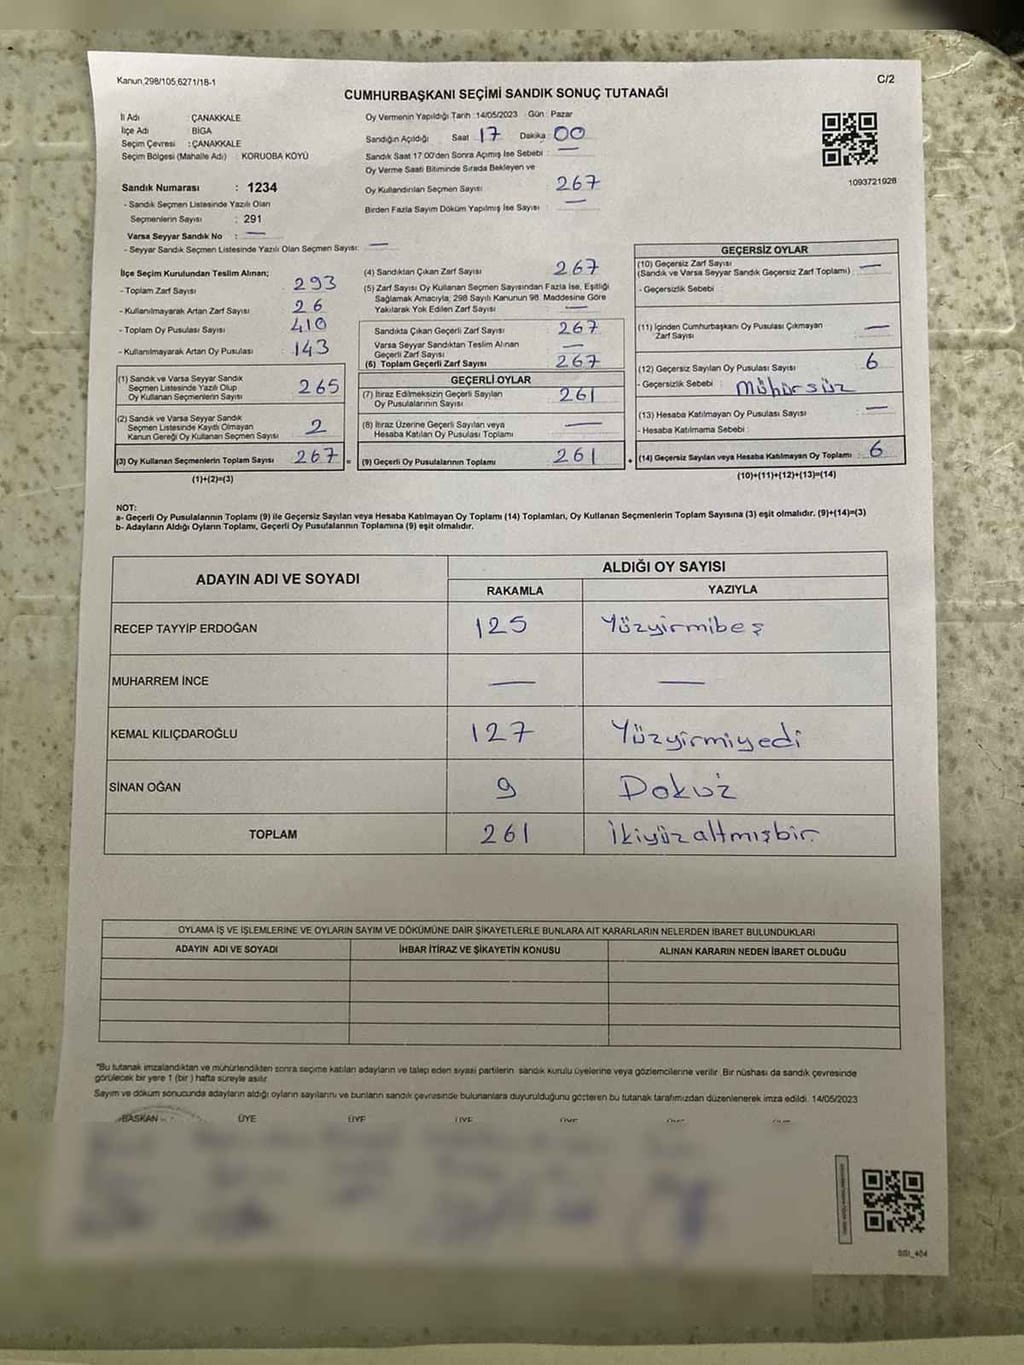 Kanun,298/105,6271/18-1
C/2
CUMHURBAŞKANI SEÇİMİ SANDIK SONUÇ TUTANAĞI
İl Adı : ÇANAKKALE
İlçe Adı : BİGA
Seçim Çevresi : ÇANAKKALE
Seçim Bölgesi (Mahalle Adı) : KORUOBA KÖYÜ
Sandık Numarası : 1234
- Sandık Seçmen Listesinde Yazılı Olan
Seçmenlerin Sayısı : 291
Varsa Seyyar Sandık No : —
- Seyyar Sandık Seçmen Listesinde Yazılı Olan Seçmen Sayısı: —
Oy Vermenin Yapıldığı Tarih :14/05/2023 Gün : Pazar
Sandığın Açıldığı Saat 17 Dakika 00
Sandık Saat 17:00'den Sonra Açımış İse Sebebi : —
Oy Verme Saati Bitiminde Sırada Bekleyen ve
Oy Kullandırılan Seçmen Sayısı 267
Birden Fazla Sayım Döküm Yapılmış İse Sayısı : —
1093721928
İlçe Seçim Kurulundan Teslim Alınan;
- Toplam Zarf Sayısı : 293
- Kullanılmayarak Artan Zarf Sayısı : 26
- Toplam Oy Pusulası Sayısı : 410
- Kullanılmayarak Artan Oy Pusulası : 143
(1) Sandık ve Varsa Seyyar Sandık
Seçmen Listesinde Yazılı Olup
Oy Kullanan Seçmenlerin Sayısı : 265
(2) Sandık ve Varsa Seyyar Sandık
Seçmen Listesinde Kayıtlı Olmayan
Kanun Gereği Oy Kullanan Seçmen Sayısı : 2
(3) Oy Kullanan Seçmenlerin Toplam Sayısı : 267 =
(1)+(2)=(3)
(4) Sandıktan Çıkan Zarf Sayısı : 267
(5) Zarf Sayısı Oy Kullanan Seçmen Sayısından Fazla İse, Eşitliği
Sağlamak Amacıyla, 298 Sayılı Kanunun 98. Maddesine Göre
Yakılarak Yok Edilen Zarf Sayısı : —
Sandıkta Çıkan Geçerli Zarf Sayısı : 267
Varsa Seyyar Sandıktan Teslim Alınan
Geçerli Zarf Sayısı : —
(6) Toplam Geçerli Zarf Sayısı : 267
GEÇERLİ OYLAR
(7) İtiraz Edilmeksizin Geçerli Sayılan
Oy Pusulalarının Sayısı : 261
(8) İtiraz Üzerine Geçerli Sayılan veya
Hesaba Katılan Oy Pusulası Toplamı : —
(9) Geçerli Oy Pusulalarının Toplamı : 261 +
GEÇERSİZ OYLAR
(10) Geçersiz Zarf Sayısı
(Sandık ve Varsa Seyyar Sandık Geçersiz Zarf Toplamı) : —
- Geçersizlik Sebebi :
(11) İçinden Cumhurbaşkanı Oy Pusulası Çıkmayan
Zarf Sayısı : —
(12) Geçersiz Sayılan Oy Pusulası Sayısı : 6
- Geçersizlik Sebebi : Mühürsüz
(13) Hesaba Katılmayan Oy Pusulası Sayısı : —
- Hesaba Katılmama Sebebi :
(14) Geçersiz Sayılan veya Hesaba Katılmayan Oy Toplamı : 6
(10)+(11)+(12)+(13)=(14)
NOT:
a- Geçerli Oy Pusulalarının Toplamı (9) ile Geçersiz Sayılan veya Hesaba Katılmayan Oy Toplamı (14) Toplamları, Oy Kullanan Seçmenlerin Toplam Sayısına (3) eşit olmalıdır. (9)+(14)=(3)
b- Adayların Aldığı Oyların Toplamı, Geçerli Oy Pusulalarının Toplamına (9) eşit olmalıdır.
ADAYIN ADI VE SOYADI
ALDIĞI OY SAYISI
RAKAMLA YAZIYLA
RECEP TAYYİP ERDOĞAN 125 Yüzyirmibeş
MUHARREM İNCE — —
KEMAL KILIÇDAROĞLU 127 Yüzyirmiyedi
SİNAN OĞAN 9 Dokuz
TOPLAM 261 İkiyüzaltmışbir
OYLAMA İŞ VE İŞLEMLERİNE VE OYLARIN SAYIM VE DÖKÜMÜNE DAİR ŞİKAYETLERLE BUNLARA AİT KARARLARIN NELERDEN İBARET BULUNDUKLARI
ADAYIN ADI VE SOYADI İHBAR İTİRAZ VE ŞİKAYETİN KONUSU ALINAN KARARIN NEDEN İBARET OLDUĞU
"Bu tutanak imzalandıktan ve mühürlendikten sonra seçime katılan adayların ve talep eden siyasi partilerin sandık kurulu üyelerine veya gözlemcilerine verilir. Bir nüshası da sandık çevresinde
görülecek bir yere 1 (bir ) hafta süreyle asılır.
Sayım ve döküm sonucunda adayların aldığı oyların sayılarını ve bunların sandık çevresinde bulunanlara duyurulduğunu gösteren bu tutanak tarafımızdan düzenlenerek imza edildi. 14/05/2023
BAŞKAN ÜYE ÜYE ÜYE ÜYE